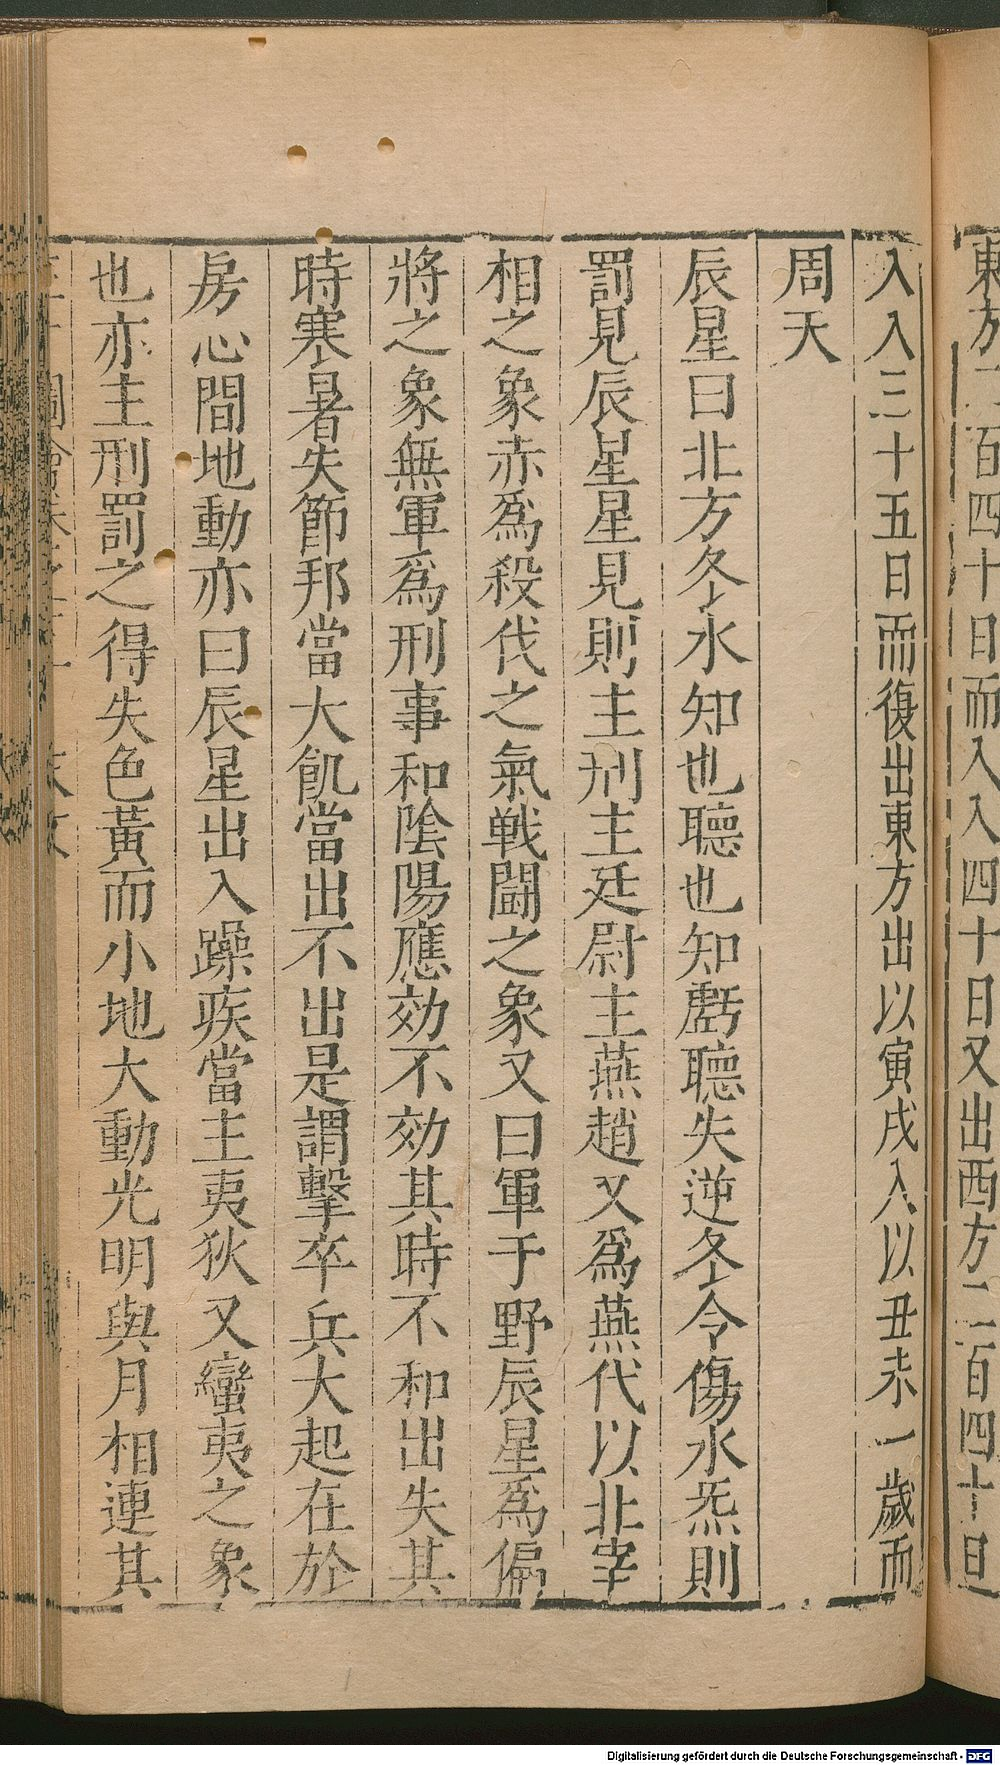 東方二百四十日而入入四十日又出西方二百四十日
入入三十五日而復出東方出以寅戌入以丑未一歲而
周天
辰星曰北方冬水知也聽也知虧聽失逆冬令傷水炁則
罰見辰星星見則主刑主廷尉主燕趙又爲燕代以北宰
相之象赤爲殺伐之氣戦闘之象又曰軍于野辰星爲偏
將之象無軍爲刑事和陰陽應効不効其時不和出失其
時寒暑失節邦當大飢當出不出是謂擊卒兵大起在於
房心間地動亦曰辰星出入躁疾當主夷狄又蠻夷之象
也亦主刑罰之得失色黃而小地大動光明與月相連其
Digitalisierung gefördert durch die Deutsche Forschungsgemeinschaft - DFG